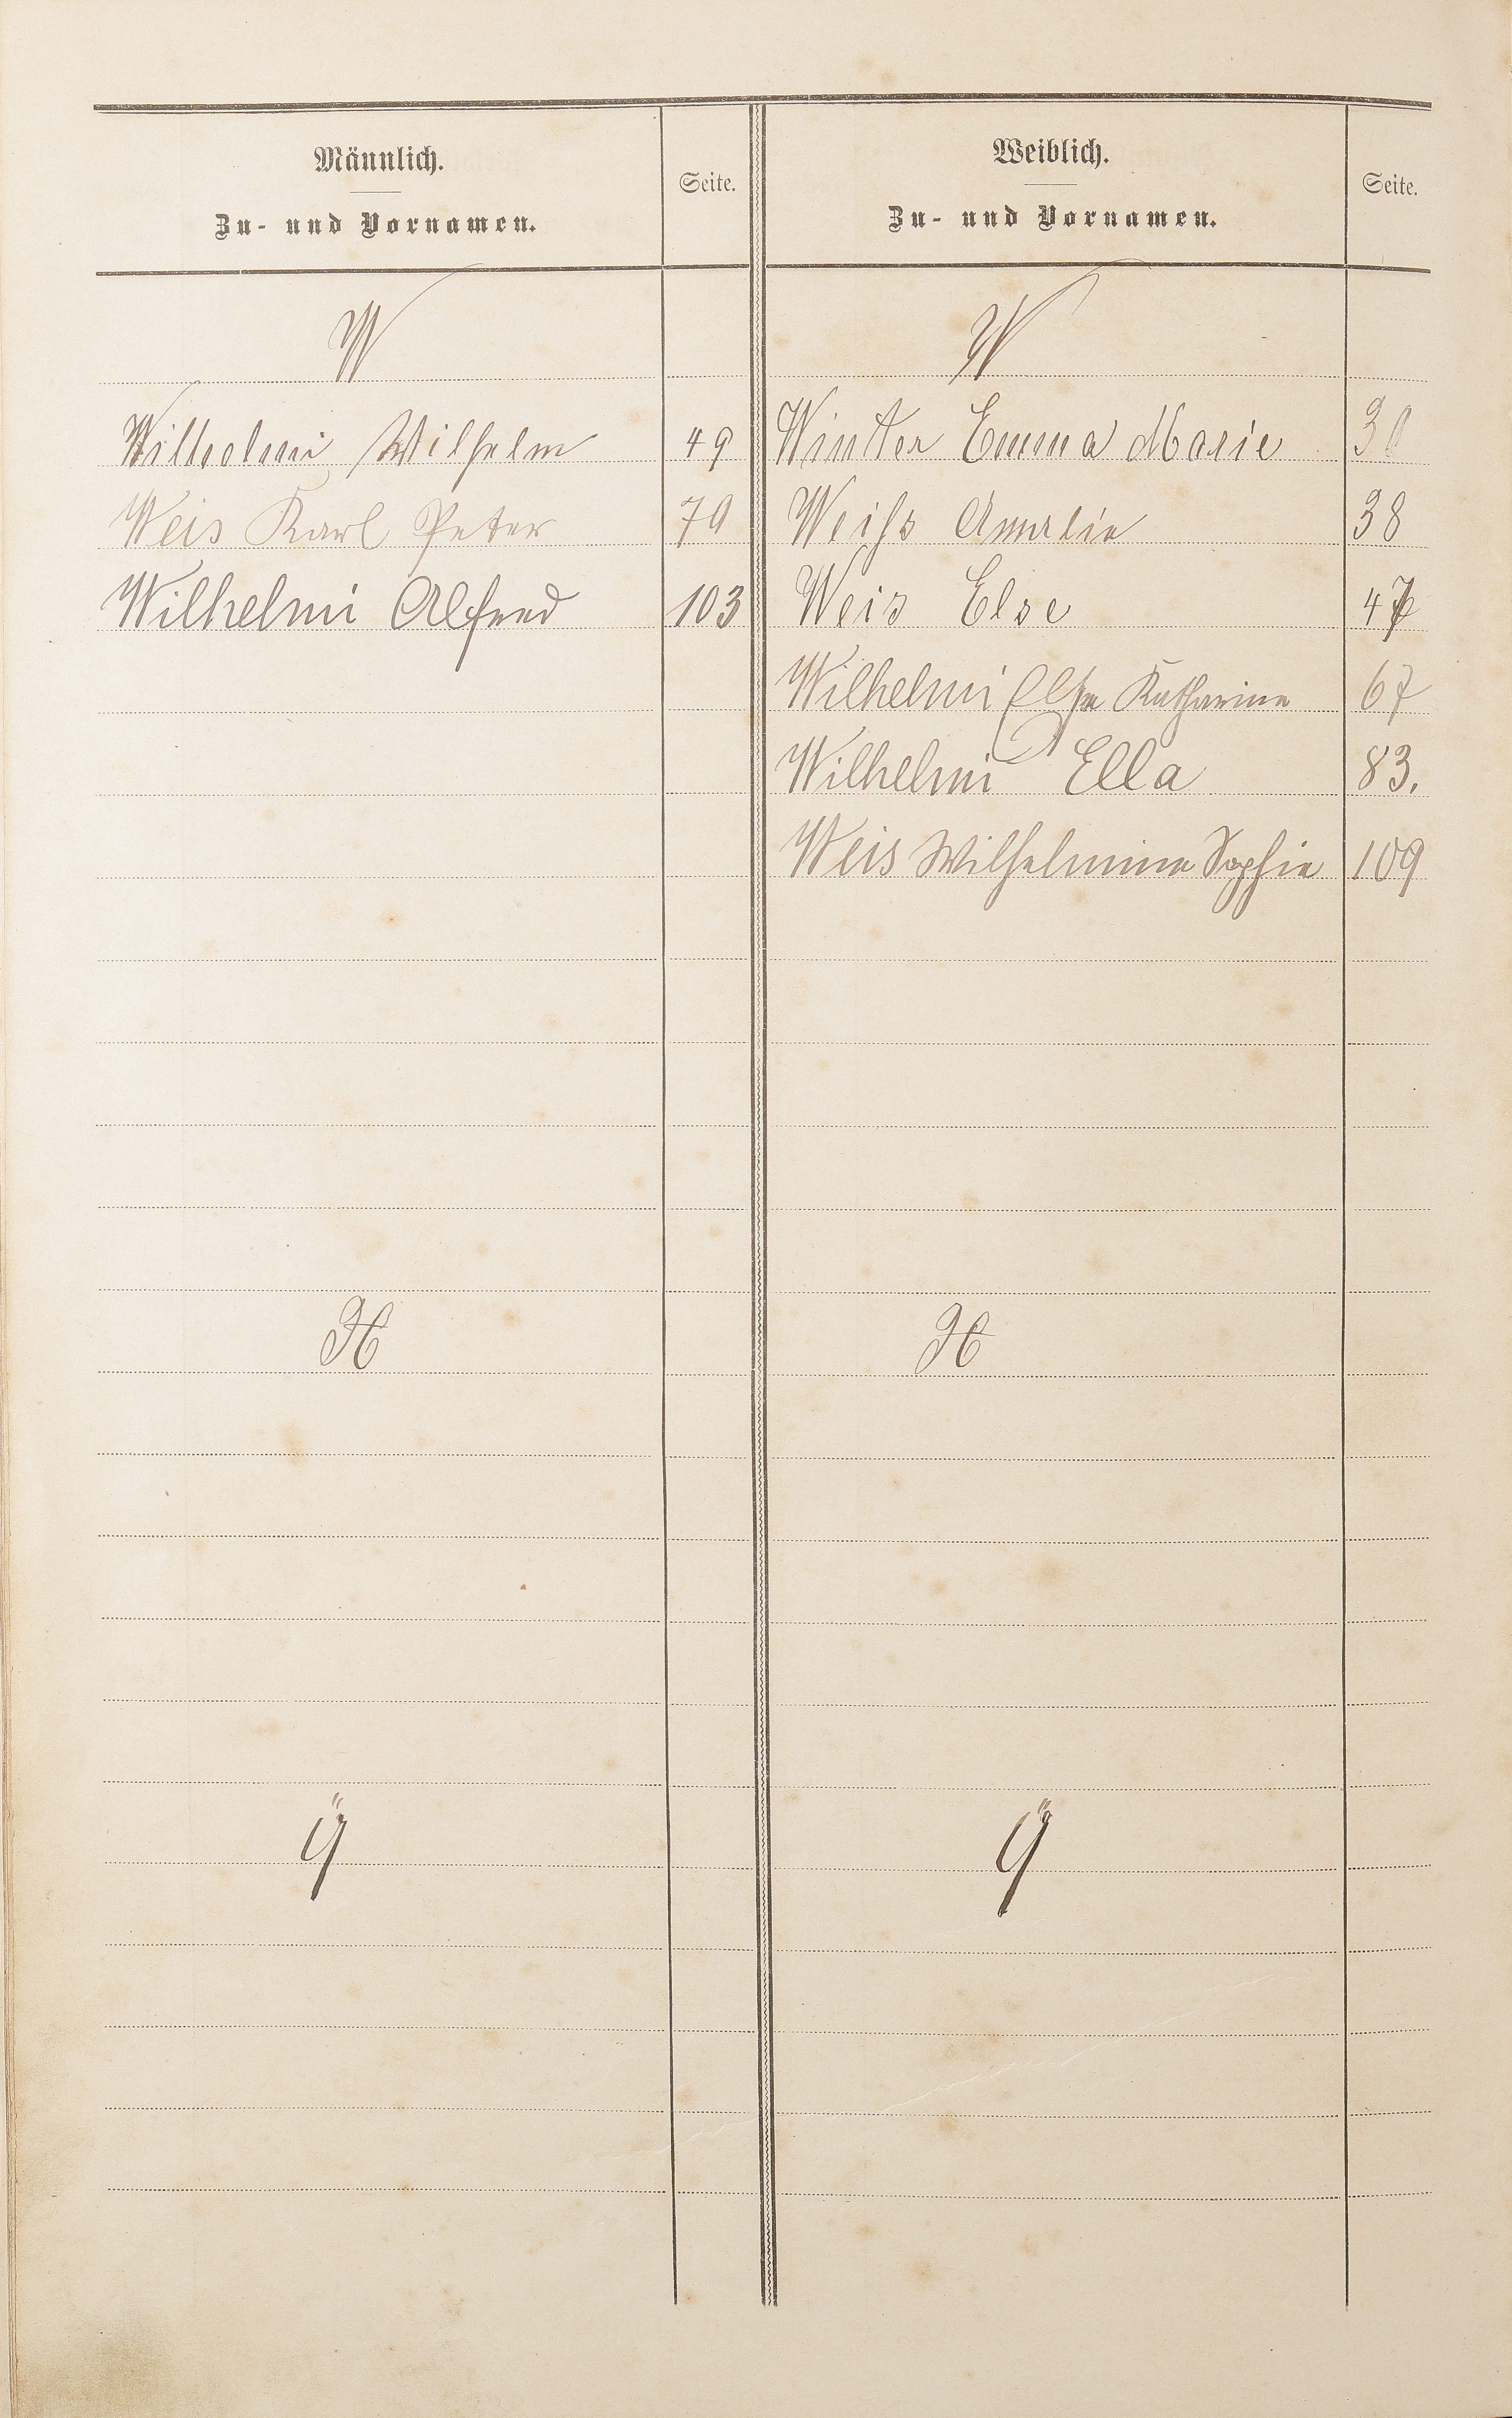 Männlich.
Zu- und Vornamen.
Seite.
Weiblich.
Zu- und Vornamen.
Seite.
W
W
Wilhelmi Wilhelm 49
Winter Emma Marie 30
Weis Karl Peter 79
Weiß Amalie 38
Wilhelmi Alfred 103
Weis Else 47
Wilhelmi Else Katharine 67
Wilhelmi Ella 83.
Weis Wilhelmine Sophie 109
X
X
Ÿ
Ÿ